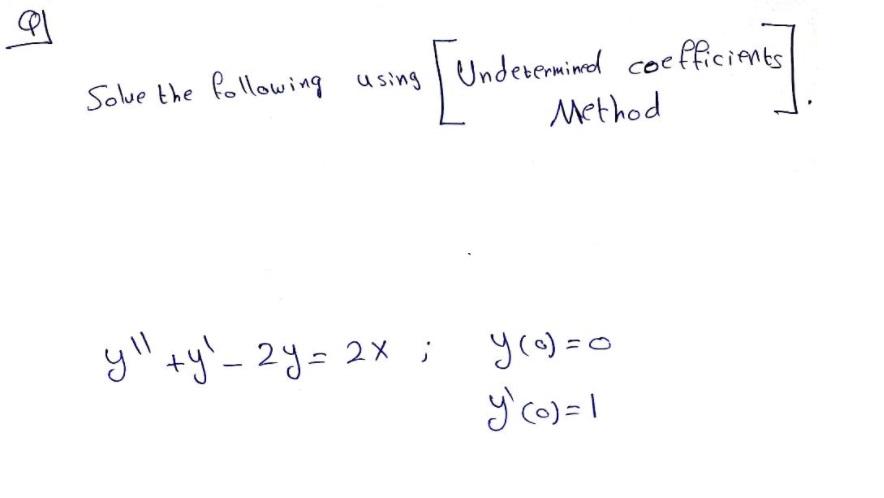 Q1
Solve the following using [Undetermined coefficients
Method].
y'' + y' - 2y = 2x ; y(0) = 0
y'(0) = 1